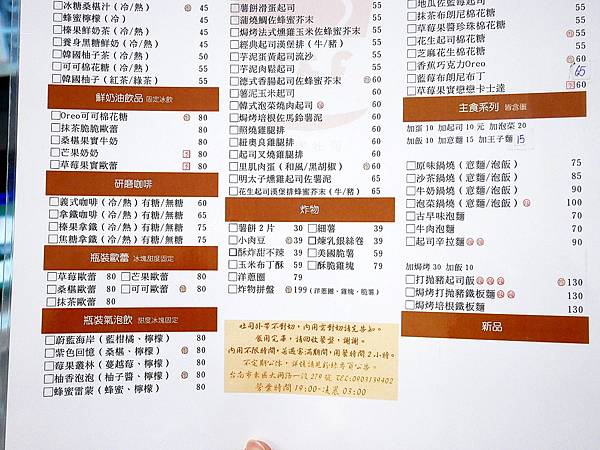 冰糖桑椹汁(冷/熱) 45
蜂蜜檸檬(冷) 45
榛果鮮奶茶(冷/熱) 55
養身黑糖鮮奶(冷/熱) 55
韓國柚子茶(冷/熱) 50
可可棉花糖(冷/熱) 55
韓國柚子(紅茶/綠茶) 55
鮮奶油飲品 固定冰飲
Oreo可可棉花糖 80
抹茶脆脆歐蕾 80
桑椹果實牛奶 80
芒果奶奶 80
草莓果實歐蕾 80
研磨咖啡
義式咖啡(冷/熱)有糖/無糖 60
拿鐵咖啡(冷/熱)有糖/無糖 65
榛果拿鐵(冷/熱)有糖/無糖 75
焦糖拿鐵(冷/熱)有糖/無糖 75
瓶裝歐蕾 冰塊甜度固定
草莓歐蕾 80 芒果歐蕾 80
桑椹歐蕾 80 可可歐蕾 80
抹茶歐蕾 80
瓶裝氣泡飲 甜度冰塊固定
蔚藍海岸(藍柑橘、檸檬) 80
紫色回憶(桑椹、檸檬) 80
莓果叢林(蔓越莓、檸檬) 80
柚香泡泡(柚子醬、檸檬) 80
蜂蜜雷蒙(蜂蜜、檸檬) 80
薯餅滑蛋起司 55
蒲燒鯛佐蜂蜜芥末 55
焗烤法式燻雞玉米起司 55
經典起司漢堡排(牛/豬) 55
芋泥蛋黃起司流沙 55
芋泥肉鬆起司 55
德式香腸起司佐蜂蜜芥末 60
薯泥玉米起司 60
韓式泡菜燒肉起司 60
焗烤培根佐馬鈴薯泥 60
照燒雞腿排 60
紐奧良雞腿排 60
起司叉燒雞腿排 60
里肌肉蛋(和風/黑胡椒) 60
明太子燻雞起司佐薯泥 65
花生起司漢堡排蜂蜜芥末(牛/豬) 65
炸物
薯餅2片 30 細薯 39
小肉豆 39 煉乳銀絲卷 39
酥炸甜不辣 39 美國脆薯 50
玉米布丁酥 59 酥脆雞塊 59
洋蔥圈 79
炸物拼盤 199(洋蔥圈、雞塊、脆薯)
吐司外帶不對切，內用需對切請先告知。
飯用完畢，請回收餐盤，謝謝。
內用不限時間，若遇客滿期間，用餐時間2小時。
不定期公休，詳情請見粉絲專頁公告。
台南市東區大同路一段279號 TEL:0903139402
營業時間 19:00-凌晨 03:00
地瓜佐藍莓起司
抹茶布朗尼棉花糖 55
草莓果醬珍珠棉花糖 55
花生起司棉花糖 55
芝麻花生棉花糖 55
香蕉巧克力Oreo 60
藍莓布朗尼布丁 65
草莓果實戀戀卡士達 60
主食系列 皆含蛋
加蛋 10 加起司 10元 加泡菜 20
加飯 10 加意麵 15 加王子麵 15
原味鍋燒(意麵/泡飯) 75
沙茶鍋燒(意麵/泡飯) 85
牛奶鍋燒(意麵/泡飯) 90
泡菜鍋燒(意麵/泡飯) 100
古早味泡麵 70
牛肉泡麵 70
起司辛拉麵 90
加焗烤 30 加飯 10
打拋豬起司飯 130
焗烤打拋豬鐵板麵 130
焗烤培根鐵板麵 130
新品